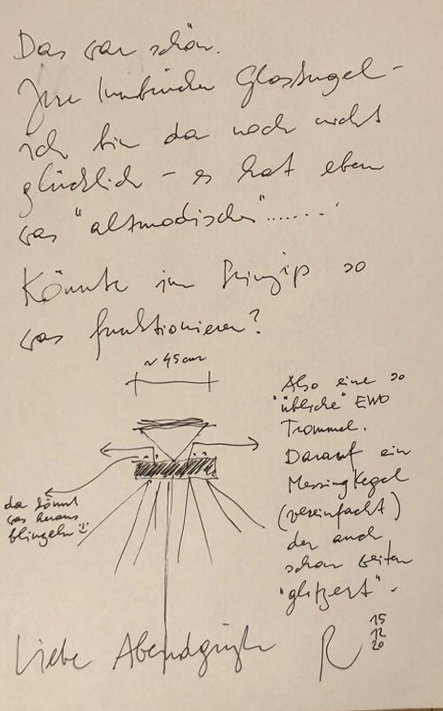 Das war schön.
Ihre Glaskugel –
ich bin da noch nicht
glücklich – es hat eben
was "altmodisches".......
Könnte im Prinzip so
was funktionieren?
~ 45cm
Also eine so
"übliche" EWO
Trommel.
Darauf ein
Messingkegel
(vereinfacht)
der auch
schon seiten
"glitzert".
da könnt
was heraus
blinzeln
Liebe Abendgrüße
R
15
12
20